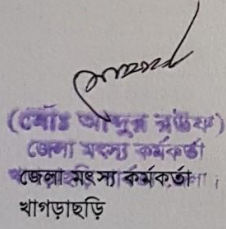 (মোঃ আব্দুর রউফ)
জেলা মৎস্য কর্মকর্তা
জেলা মৎস্য কর্মকর্তা
খাগড়াছড়ি